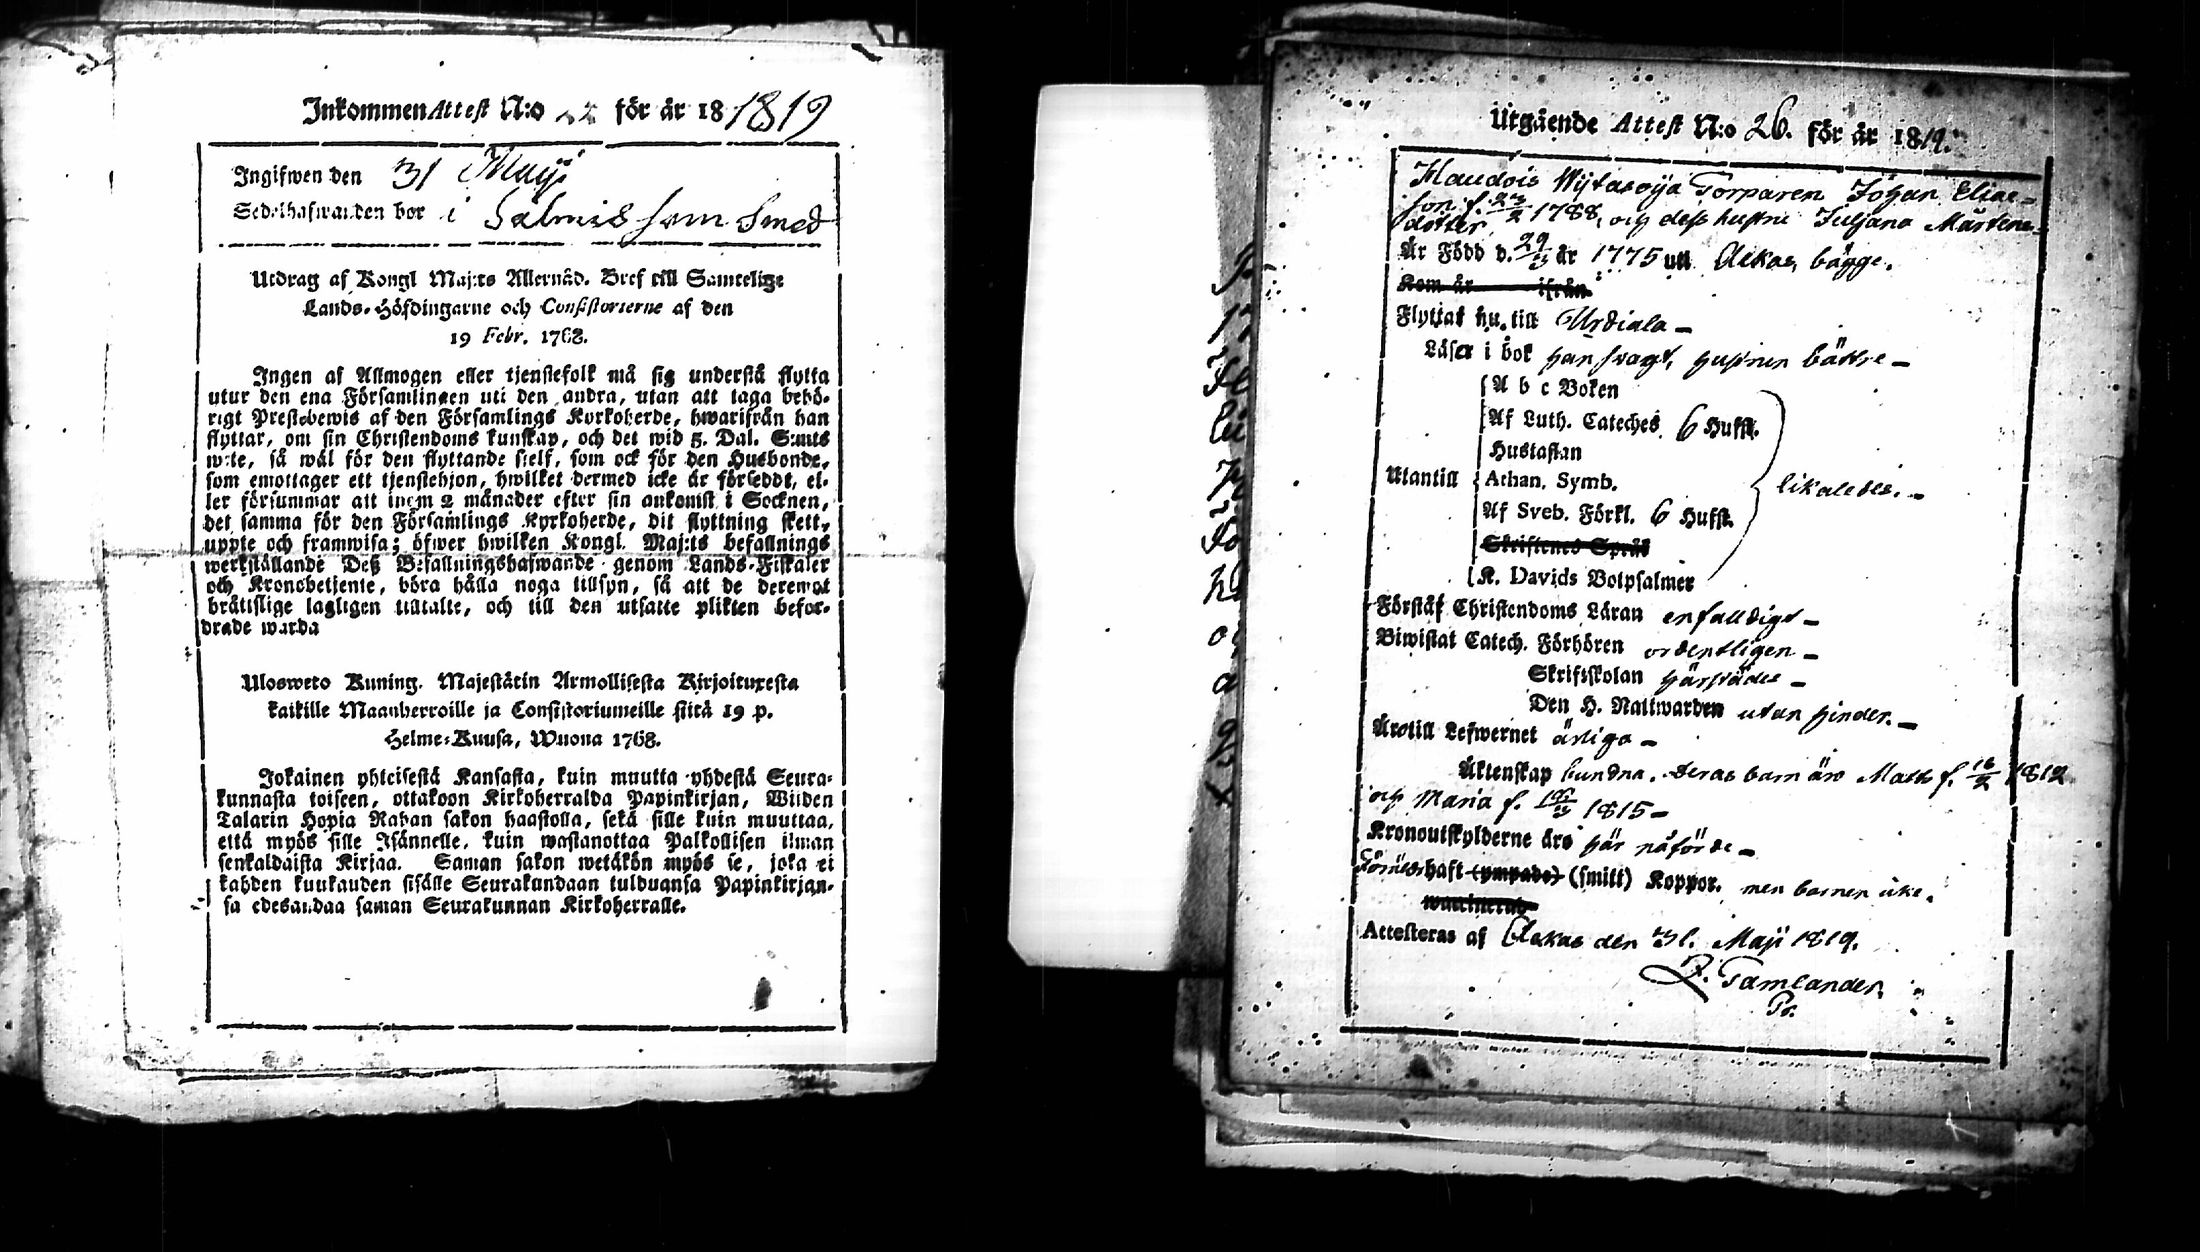 Inkommen Attest N:o 22 för år 18 1819
Ingifwen den 31 Maji
Sedelhafwanden bor i Salmis som Smed
Utdrag af Kongl Maj:ts Allernåd. Bref till Samtelige
Lands-Höfdingarne och Consistorierne af den
19 Febr. 1768.
Ingen af Allmogen eller tjenstefolk må sig understå flytta
utur den ena Församlingen uti den andra, utan att taga behö-
rigt Prestebewis af den Församlings Kyrkoherde, hwarifrån han
flyttar, om sin Christendoms kunskap, och det wid 5. Dal. S:mts
wite, så wäl för den flyttande sielf, som ock för den Husbonde,
som emottager ett tjenstehjon, hwilket dermed icke är försedt, el-
ler försummar att inom 2 månader efter sin ankomst i Socknen,
det samma för den Församlings Kyrkoherde, dit flyttning skett,
uppte och framwisa; öfwer hwilken Kongl. Maj:ts befallnings
werkställande Deß Befallningshafwande genom Lands-Fiskaler
och Kronobetjente, böra hålla noga tillsyn, så att de deremot
bråttslige lagligen tilltalte, och till den utsatte plikten befor-
drade warda
Ulosweto Kuning. Majestätin Armollisesta Kirjoituxesta
kaikille Maanherroille ja Consistoriumeille siitä 19 p.
Helme-Kuusa, Wuona 1768.
Jokainen yhteisestä Kansasta, kuin muutta yhdestä Seura-
kunnasta toiseen, ottakoon Kirkoherralda Papinkirjan, Wiiden
Talarin Hopia Rahan sakon haastolla, sekä sille kuin muuttaa,
että myös sille Isännelle, kuin wastanottaa Palkollisen ilman
senkaldaista Kirjaa. Saman sakon wetäkön myös se, joka ei
kahden kuukauden sisälle Seurakundaan tulduansa Papinkirjan-
sa edesandaa saman Seurakunnan Kirkoherralle.
Utgående Attest N:o 26. för år 1819.
Torparen Johan Elias-
son f. 23/2 1788, och dess hustru Juljana Mårtens-
dotter
Är Född d. 29/3 år 1775 uti Ackas, bägge.
Kom år ifrån
Flyttat nu till Urdiala –
Läser i bok han swagt, hustrun bättre –
A b c Boken
Af Luth. Cateches 6 Hufst.
Hustaflan
Utantill
Athan. Symb.
likaledes. –
Af Sveb. Förkl. 6 Hufst.
Skriftenes Språk
K. Davids Botpsalmer
Förstår Christendoms Läran enfalldigt –
Biwistat Catech. Förhören ordentligen –
Skriftskolan härstädes –
Den H. Nattwarden utan hinder. –
Äro till Lefwernet ärliga –
Äktenskap bundna. Deras barn äro Matts f. 16/2 1812
och Maria f. 18/3 1815 –
Kronoutskylderne äro här påförde –
haft (ympade) (smitt) Koppor. men barnen icke.
Attesteras af Ackas den 31. Maji 1819.
Tamlander
Pr.